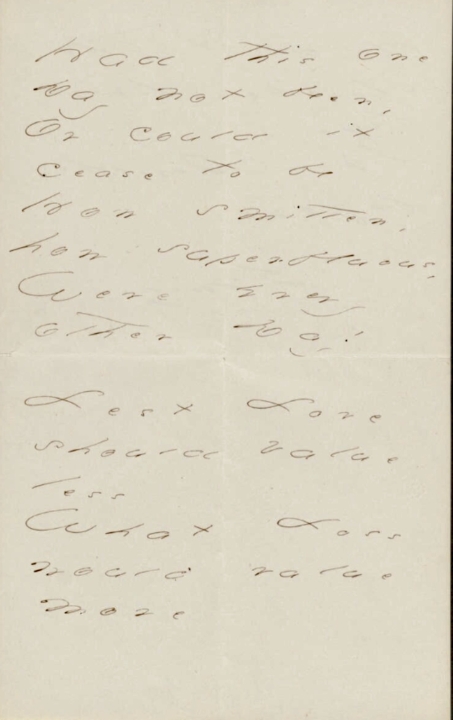 Had this one
Day not been,
Or could it
cease to be
How smitten,
how superfluous,
Were every
other Day!
Lest Love
should value
less
What Loss
would value
more